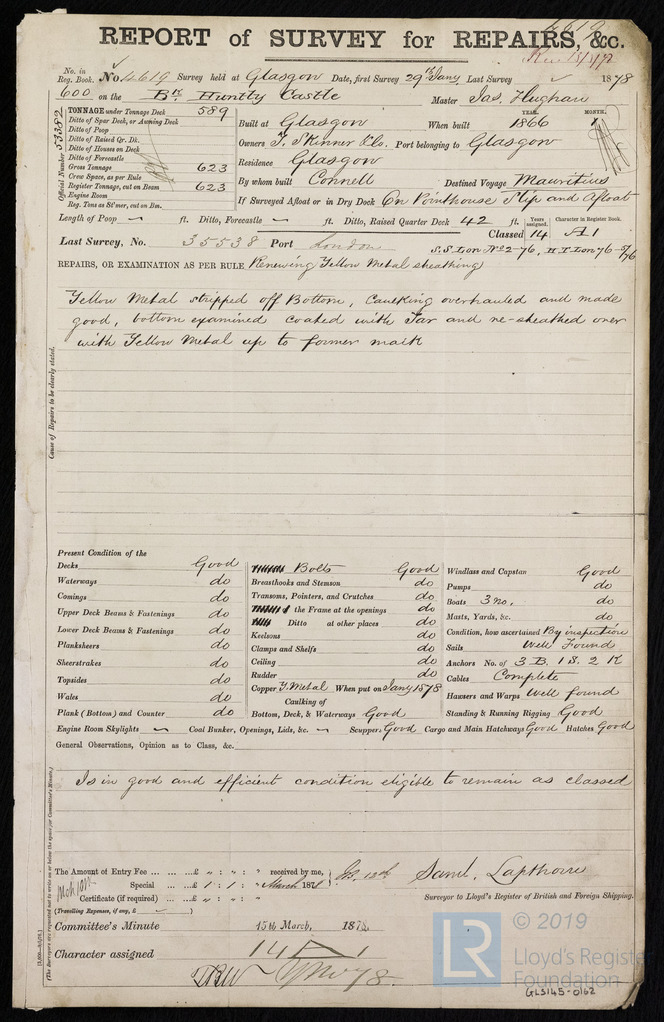 4619
REPORT of SURVEY for REPAIRS, &c.
Rec 15/3/78
No. in Reg. Book. No 4619 Survey held at Glasgow Date, first Survey 29th Jany Last Survey 1878
600 on the Bk Huntly Castle Master Jas. Hughan
Official Number 53382
TONNAGE under Tonnage Deck 589
Ditto of Spar Deck, or Awning Deck
Ditto of Poop
Ditto of Raised Qr. Dk.
Ditto of House on Deck
Ditto of Forecastle
Gross Tonnage 623
Crew Space, as per Rule
Register Tonnage, cut on Beam 623
Engine Room
Reg. Tons as St'mer, cut on Bm.
YEAR. MONTH.
Built at Glasgow When built 1866 1
Owners T. Skinner & Co. Port belonging to Glasgow
Residence Glasgow
By whom built Connell Destined Voyage Mauritius
If Surveyed Afloat or in Dry Dock On Pointhouse Slip and Afloat
Length of Poop ft. Ditto, Forecastle ft. Ditto, Raised Quarter Deck 42 ft. Years assigned. Character in Register Book.
Classed 14 A 1
Last Survey, No. 35538 Port London S.S Lon No 2-76, H T Lon 76-5/76
REPAIRS, OR EXAMINATION AS PER RULE Renewing Yellow Metal sheathing
Yellow Metal stripped off Bottom, Caulking overhauled and made
good, bottom examined coated with Tar and re-sheathed over
with Yellow Metal up to former mark
Cause of Repairs to be clearly stated.
Present Condition of the
Decks Good
Waterways do
Comings do
Upper Deck Beams & Fastenings do
Lower Deck Beams & Fastenings do
Planksheers do
Sheerstrakes do
Topsides do
Wales do
Plank (Bottom) and Counter do
Bolts Good
Breasthooks and Stemson do
Transoms, Pointers, and Crutches do
the Frame at the openings do
Ditto at other places do
Keelsons do
Clamps and Shelfs do
Ceiling do
Rudder do
Copper Y. Metal When put on Jany 1878
Caulking of
Bottom, Deck, & Waterways Good
Windlass and Capstan Good
Pumps do
Boats 3 no. do
Masts, Yards, &c. do
Condition, how ascertained By inspection
Sails Well Found
Anchors No. of 3 B. 1 S. 2 K
Cables Complete
Hawsers and Warps Well found
Standing & Running Rigging Good
Engine Room Skylights Coal Bunker, Openings, Lids, &c. Scupper Good Cargo and Main Hatchways Good Hatches Good
General Observations, Opinion as to Class, &c.
Is in good and efficient condition eligible to remain as classed
(The Surveyors are requested not to write on or below the space for Committee's Minute.)
The Amount of Entry Fee ... £ : : received by me,
Special ... £ 1 : 1 : March 1878
Certificate (if required) ... £ : :
(Travelling Expenses, if any, £ )
Saml. Lapthorn
Surveyor to Lloyd's Register of British and Foreign Shipping.
Committee's Minute 15th March, 1878
Character assigned 14 A 1
LR
© 2019
Lloyd's Register
Foundation
GLS145-0162